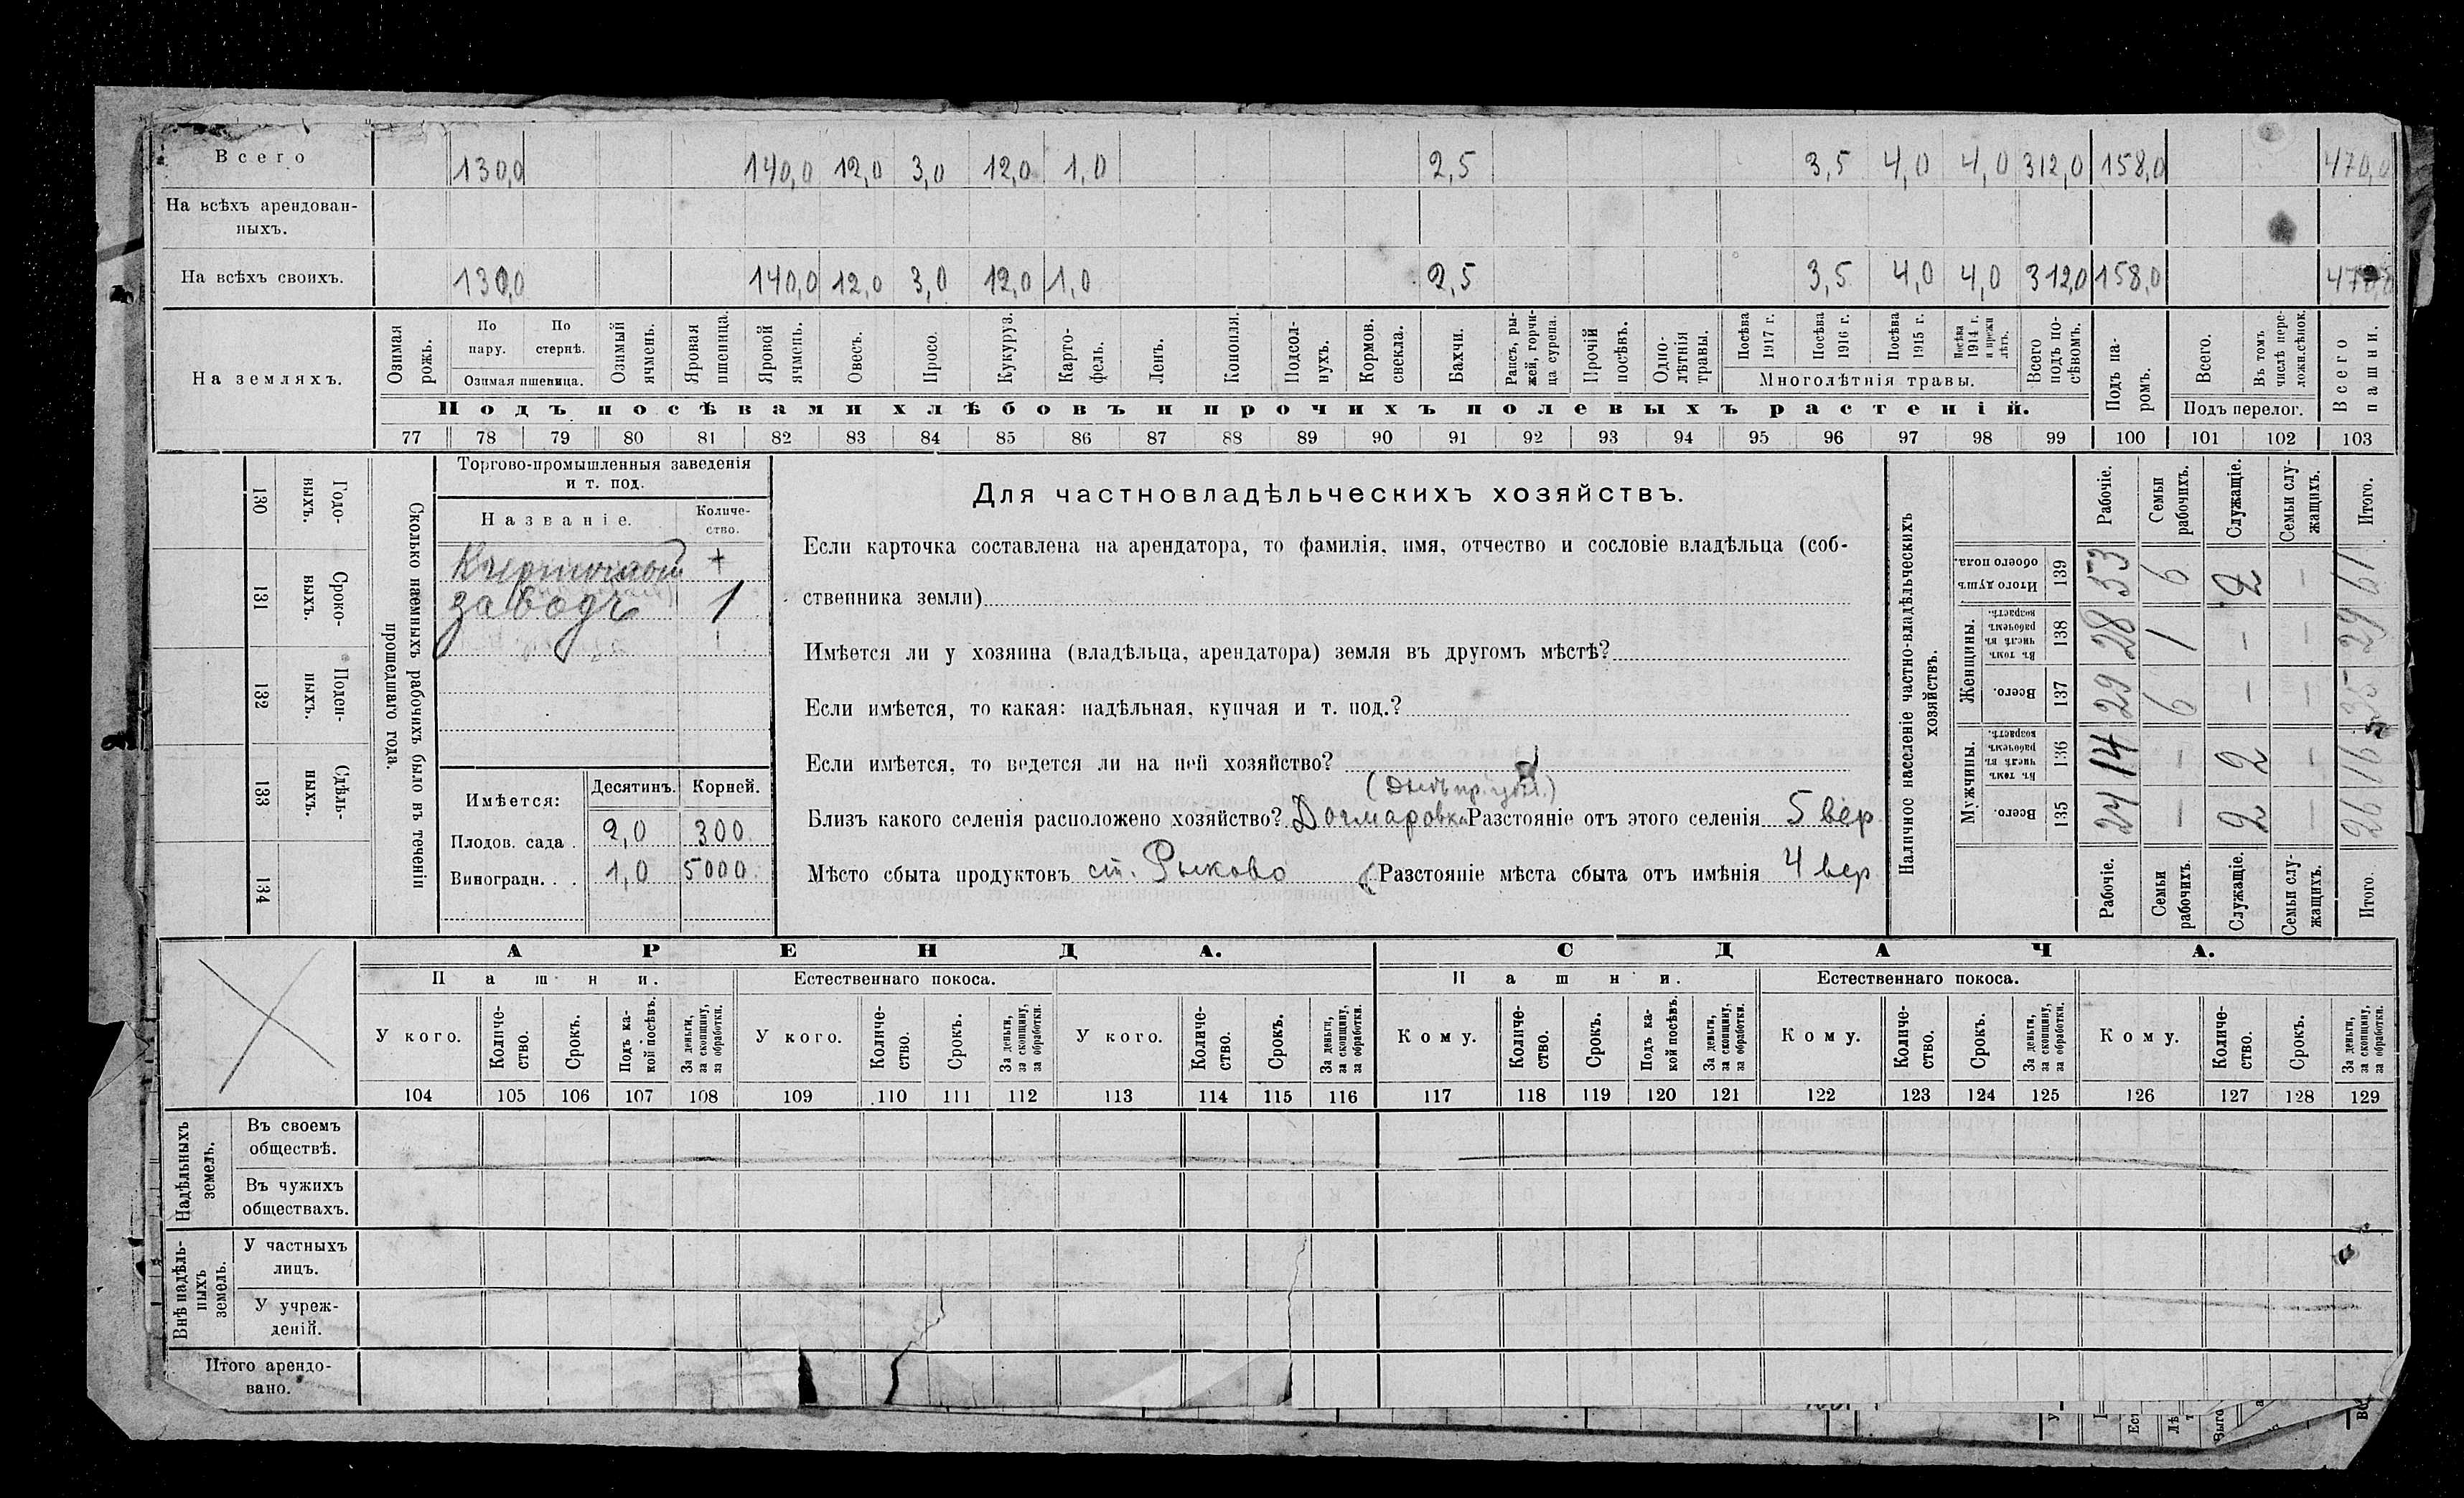 Всего 130,0 140,0 12,0 3,0 12,0 1,0 2,5 3,5 4,0 4,0 312,0 158,0 470,0
На всѣхъ арендован-
ныхъ.
На всѣхъ своихъ. 130,0 140,0 12,0 3,0 12,0 1,0 2,5 3,5 4,0 4,0 312,0 158,0 470,0
На земляхъ.
Озимая рожь.
По пару.
По стернѣ.
Озимая пшеница.
Озимый ячмень.
Яровая пшеница.
Яровой ячмень.
Овесъ.
Просо.
Кукуруз.
Карто-
фель.
Ленъ.
Конопля.
Подсол-
нухъ.
Кормов. свекла.
Бахчи.
Рапсъ, ры-
жей, горчи-
ца сурепа.
Прочій посѣвъ.
Одно-
лѣтнія травы.
Посѣва 1917 г.
Посѣва 1916 г.
Посѣва 1915 г.
Посѣва 1914 г. и прежн лѣтъ.
Многолѣтнія травы.
Всего подъ по-
сѣвомъ.
Подъ па-
ромъ.
Всего.
Въ томъ числѣ пере-
ложн.сѣнок.
Подъ перелог.
Всего пашни.
Подъ посѣвами хлѣбовъ и прочихъ полевыхъ растеній.
77 78 79 80 81 82 83 84 85 86 87 88 89 90 91 92 93 94 95 96 97 98 99 100 101 102 103
130 Годо-
выхъ.
131 Сроко-
выхъ.
132 Поден-
ныхъ.
133 Сдѣль-
ныхъ.
134
Сколько наемныхъ рабочихъ было въ теченіи
прошедшаго года.
Торгово-промышленныя заведенія
и т. под.
Названіе. Количе-
ство.
Кирпичный +
заводъ 1
Имѣется: Десятинъ. Корней.
Плодов. сада . 2,0 300
Виноградн. . . 1,0 5000
Для частновладѣльческихъ хозяйствъ.
Если карточка составлена на арендатора, то фамилія, имя, отчество и сословіе владѣльца (соб-
ственника земли)
Имѣется ли у хозяина (владѣльца, арендатора) земля въ другомъ мѣстѣ?
Если имѣется, то какая: надѣльная, купчая и т. под.?
Если имѣется, то ведется ли на ней хозяйство?
(Днѣпр. уѣзд.)
Близъ какого селенія расположено хозяйство? Догмаровка Разстояніе отъ этого селенія 5 вер
Мѣсто сбыта продуктовъ ст. Рыково Разстояніе мѣста сбыта отъ имѣнія 4 вер
Наличное населеніе частно-владѣльческихъ
хозяйствъ.
Рабочіе. Семьи рабочихъ. Служащіе. Семьи слу-
жащихъ. Итого.
Итого душъ обоего пола. 139 53 6 2 - 61
Женщины.
Въ томъ числѣ въ рабочемъ возрастѣ. 138 28 1 - - 29
Всего. 137 29 6 - - 35
Мужчины.
Въ томъ числѣ въ рабочемъ возрастѣ. 136 14 - 2 - 16
Всего. 135 24 - 2 - 26
Рабочіе. Семьи рабочихъ. Служащіе. Семьи слу-
жащихъ. Итого.
АРЕНДА. СДАЧА.
Пашни. Естественнаго покоса. Пашни. Естественнаго покоса.
У кого. Количе-
ство. Срокъ. Подъ ка-
кой посѣвъ. За деньги, за скопщину, за обработки.
У кого. Количе-
ство. Срокъ. За деньги, за скопщину, за обработки.
У кого. Количе-
ство. Срокъ. За деньги, за скопщину, за обработки.
Кому. Количе-
ство. Срокъ. Подъ ка-
кой посѣвъ. За деньги, за скопщину, за обработки.
Кому. Количе-
ство. Срокъ. За деньги, за скопщину, за обработки.
Кому. Количе-
ство. Срокъ. За деньги, за скопщину, за обработки.
104 105 106 107 108 109 110 111 112 113 114 115 116 117 118 119 120 121 122 123 124 125 126 127 128 129
Надѣльныхъ земель.
Въ своемъ
обществѣ.
Въ чужихъ
обществахъ.
Внѣ надѣль-
ныхъ земель.
У частныхъ
лицъ.
У учреж-
деній.
Итого арендо-
вано.